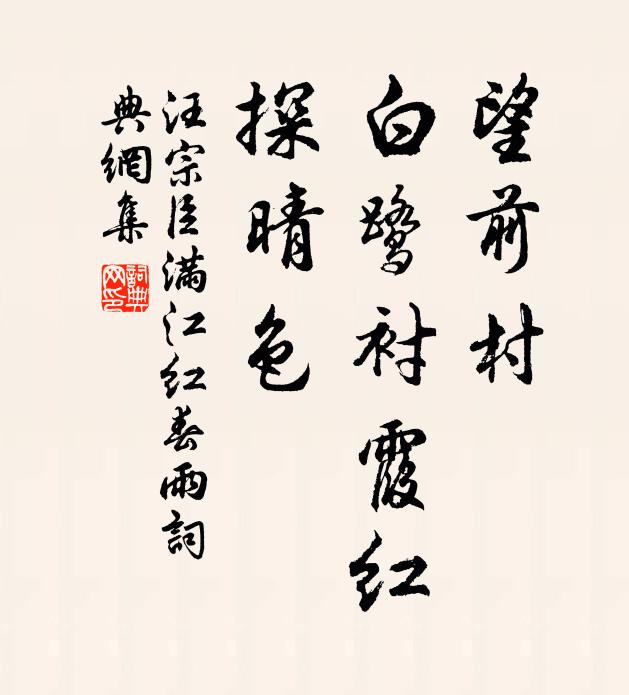 望前村
白鹭衬霞红
探晴色
汪宗臣满江红春雨词
典網集
詞典
网印